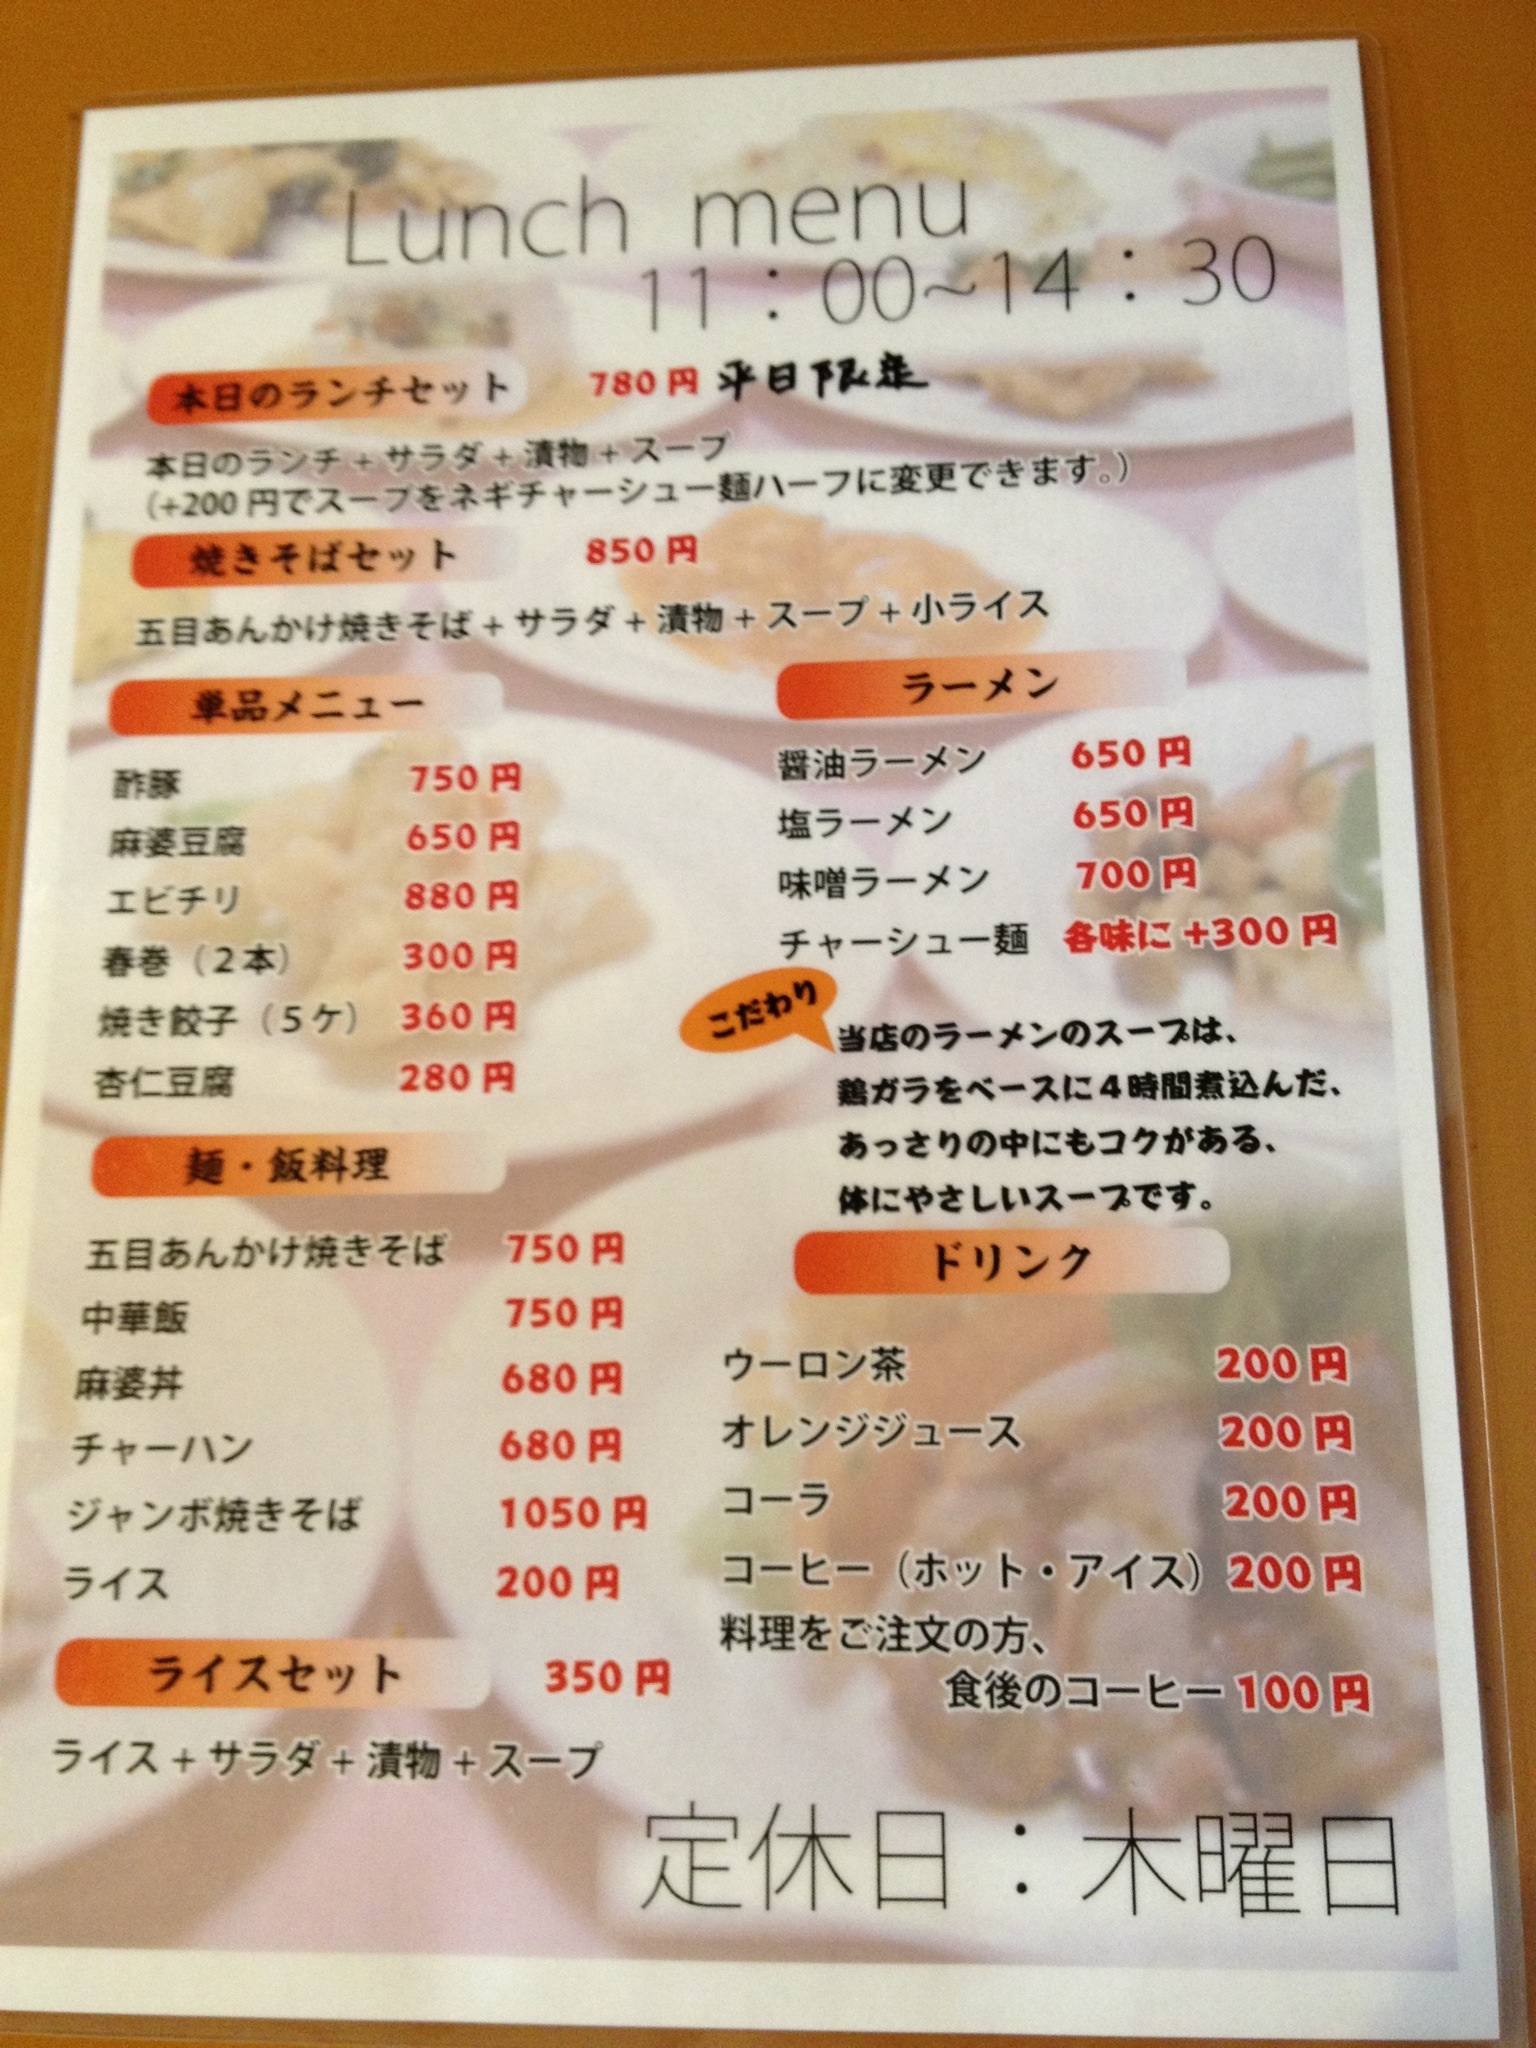 Lunch menu
11：00~14：30
本日のランチセット 780円 平日限定
本日のランチ + サラダ + 漬物 + スープ
(+200 円でスープをネギチャーシュー麺ハーフに変更できます。)
焼きそばセット 850円
五目あんかけ焼きそば + サラダ + 漬物 + スープ + 小ライス
単品メニュー
酢豚 750円
麻婆豆腐 650円
エビチリ 880円
春巻（２本） 300円
焼き餃子（５ケ） 360円
杏仁豆腐 280円
麺・飯料理
五目あんかけ焼きそば 750円
中華飯 750円
麻婆丼 680円
チャーハン 680円
ジャンボ焼きそば 1050円
ライス 200円
ライスセット 350円
ライス + サラダ + 漬物 + スープ
ラーメン
醤油ラーメン 650円
塩ラーメン 650円
味噌ラーメン 700円
チャーシュー麺 各味に +300円
こだわり
当店のラーメンのスープは、
鶏ガラをベースに４時間煮込んだ、
あっさりの中にもコクがある、
体にやさしいスープです。
ドリンク
ウーロン茶 200円
オレンジジュース 200円
コーラ 200円
コーヒー（ホット・アイス） 200円
料理をご注文の方、
食後のコーヒー 100円
定休日：木曜日